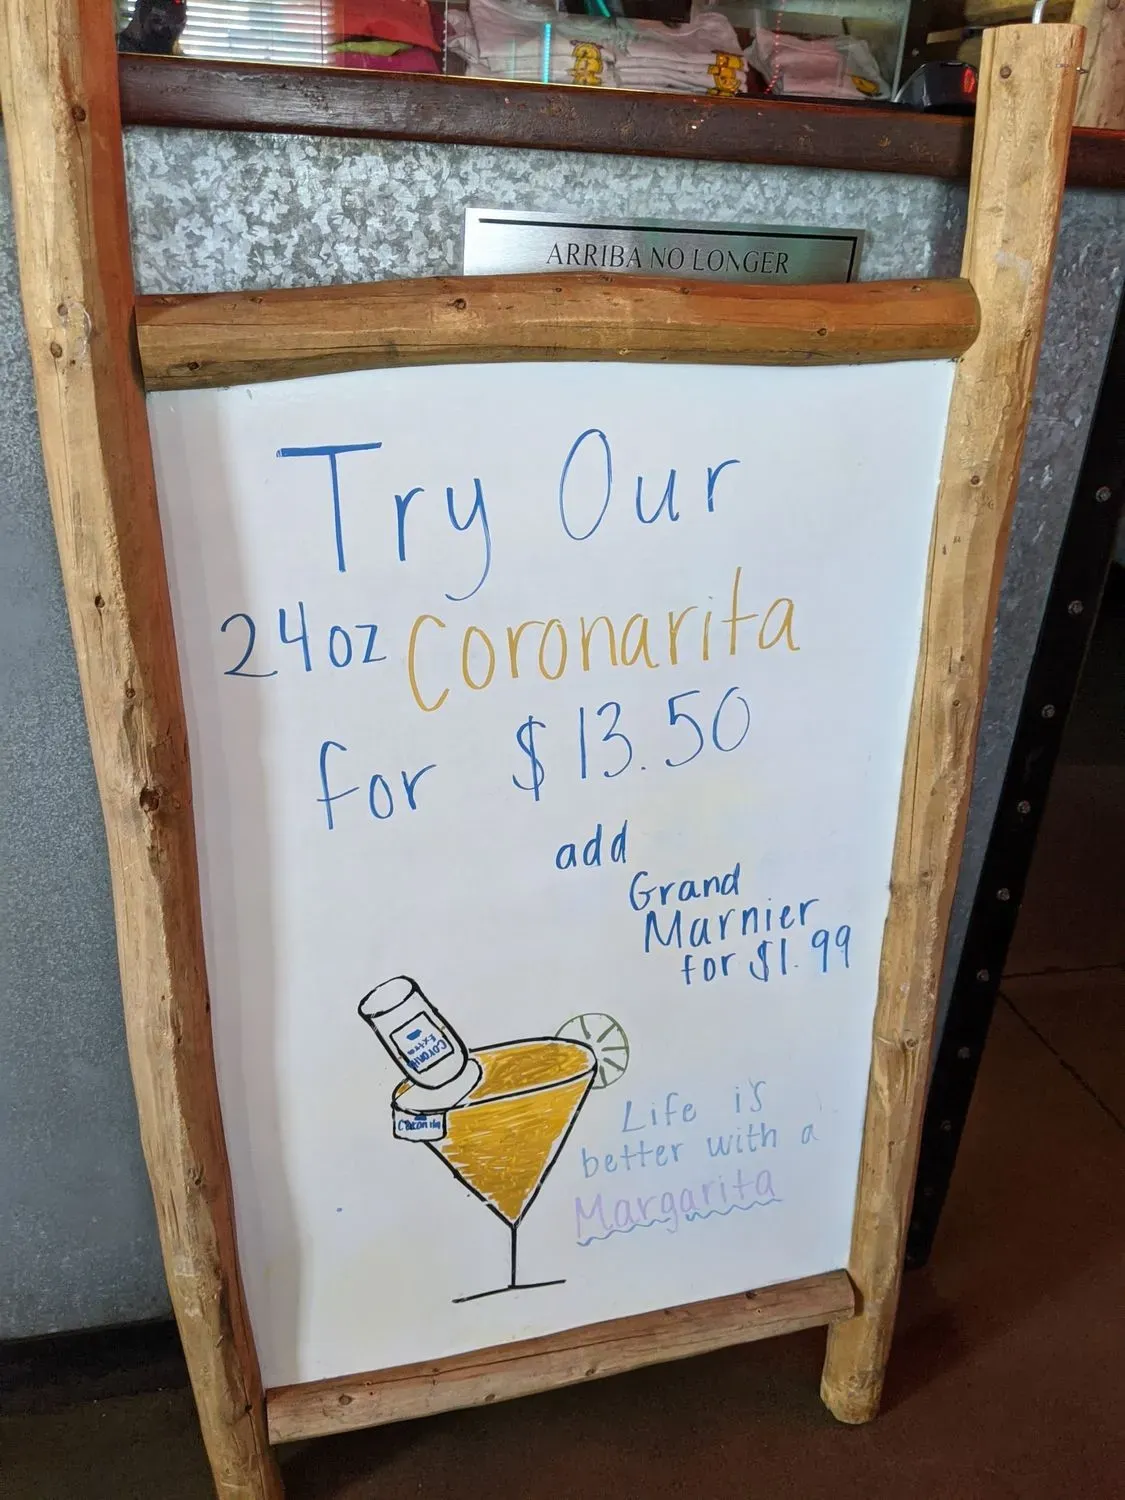 ARRIBA NO LONGER
Try Our
24oz Coronarita
for $13.50
add
Grand
Marnier
for $1.99
Corona
Extra
Life is
better with a
Margarita